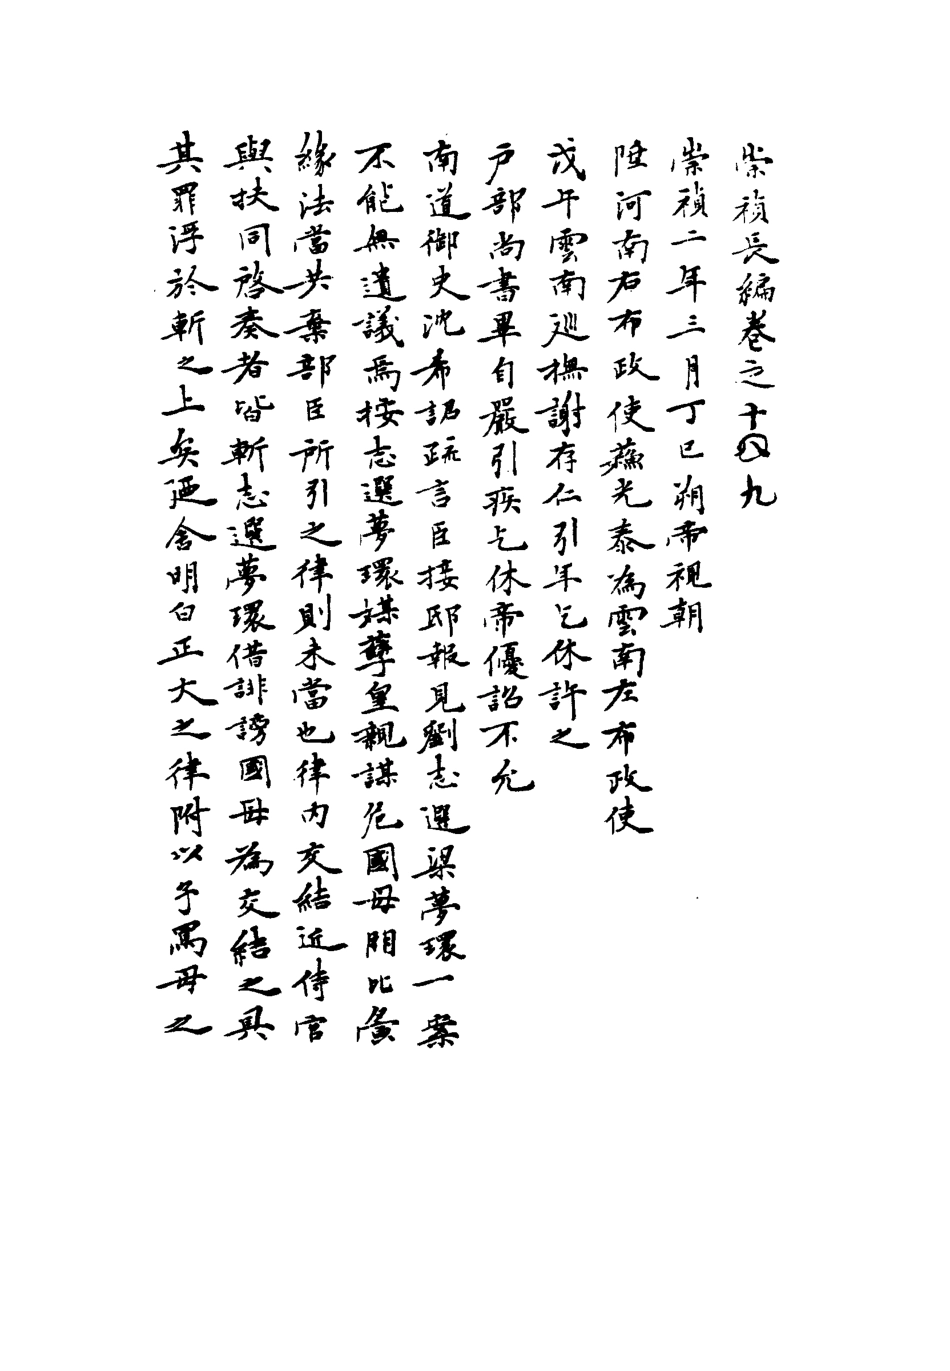 崇禎長編卷之十四九
崇禎二年三月丁巳朔帝視朝
陞河南右布政使蘇光泰為雲南左布政使
戊午雲南巡撫謝存仁引年乞休許之
戶部尚書畢自嚴引疾乞休帝優詔不允
南道御史沈希詔疏言臣接邸報見劉志選梁夢環一案
不能無遺議焉按志選夢環媒孽皇親謀危國母朋比夤
緣法當共棄部臣所引之律則未當也律內交結近侍官
與扶同啓奏者皆斬志選夢環借誹謗國母為交結之具
其罪浮於斬之上矣廼舍明白正大之律附以子罵母之